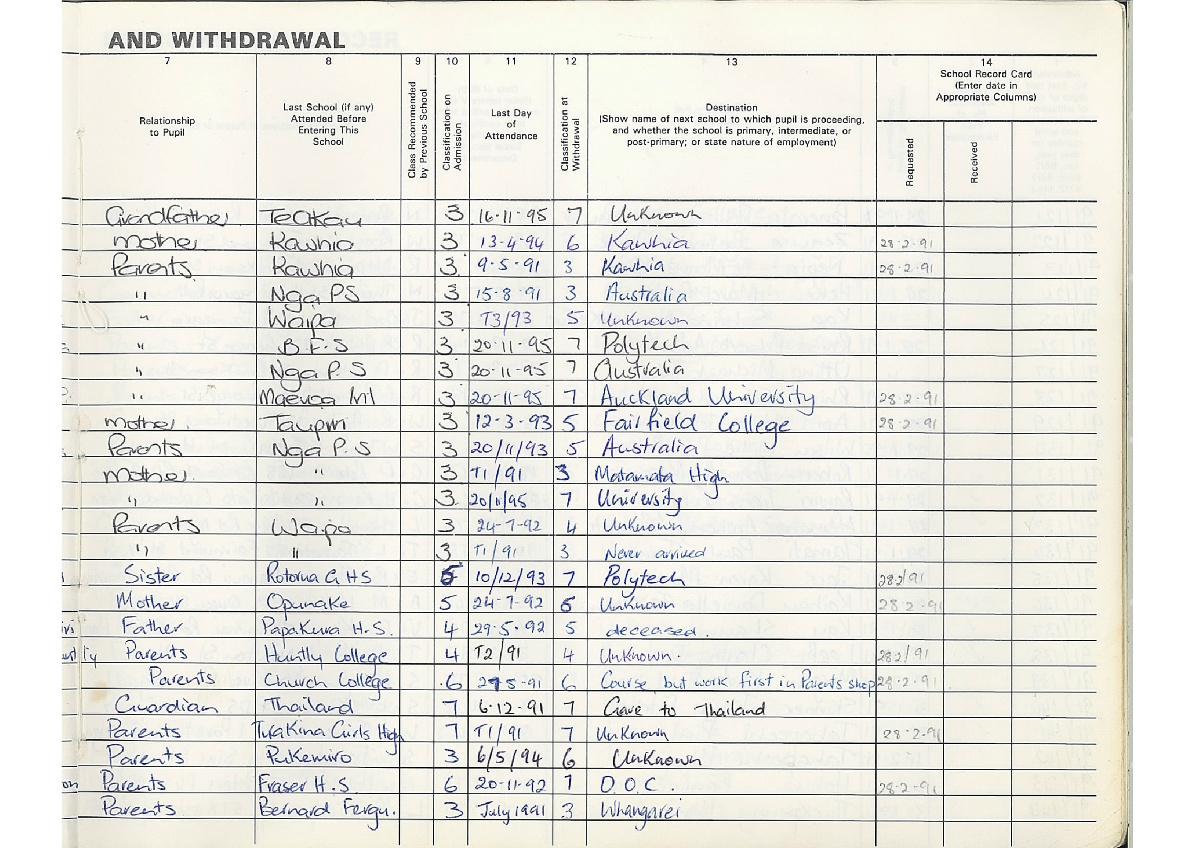 AND WITHDRAWAL
7 8 9 10 11 12 13 14
Relationship to Pupil
Last School (if any) Attended Before Entering This School
Class Recommended by Previous School
Classification on Admission
Last Day of Attendance
Classification at Withdrawal
Destination
(Show name of next school to which pupil is proceeding, and whether the school is primary, intermediate, or post-primary; or state nature of employment)
School Record Card (Enter date in Appropriate Columns)
Requested
Received
Grandfather TeAkau 3 16-11-95 7 Unknown
Mother Kawhia 3 13-4-94 6 Kawhia 28-2-91
Parents Kawhia 3 9-5-91 3 Kawhia 28-2-91
" Nga PS 3 15-8-91 3 Australia
" Waipa 3 T3/93 5 Unknown
" B.F.S 3 20-11-95 7 Polytech
" Nga P.S 3 20-11-95 7 Australia
" Maeroa Int 3 20-11-95 7 Auckland University 28-2-91
Mother. Taupiri 3 12-3-93 5 Fairfield College 28-2-91
Parents Nga P.S 3 20/11/93 5 Australia
Mother. " 3 T1/91 3 Matamata High
" " 3 20/11/95 7 University
Parents Waipa 3 24-7-92 4 Unknown
" " 3 T1/91 3 Never arrived
Sister Rotorua G HS 6 10/12/93 7 Polytech 282/91
Mother Opunake 5 24-7-92 6 Unknown 28 2-91
Father Papakura H.S. 4 29-5-92 5 deceased.
Parents Huntly College 4 T2/91 4 Unknown. 282/91
Parents Church College 6 275-91 6 Course, but work first in Parents shop 28-2-91
Guardian Thailand 7 6-12-91 7 Gave to Thailand
Parents Turakina Girls High 7 T1/91 7 Unknown 28-2-91
Parents Pukemiro 3 6/5/94 6 Unknown
Parents Fraser H.S. 6 20-11-92 7 D.O.C. 28-2-91
Parents Bernard Fergu. 3 July 1991 3 Whangarei